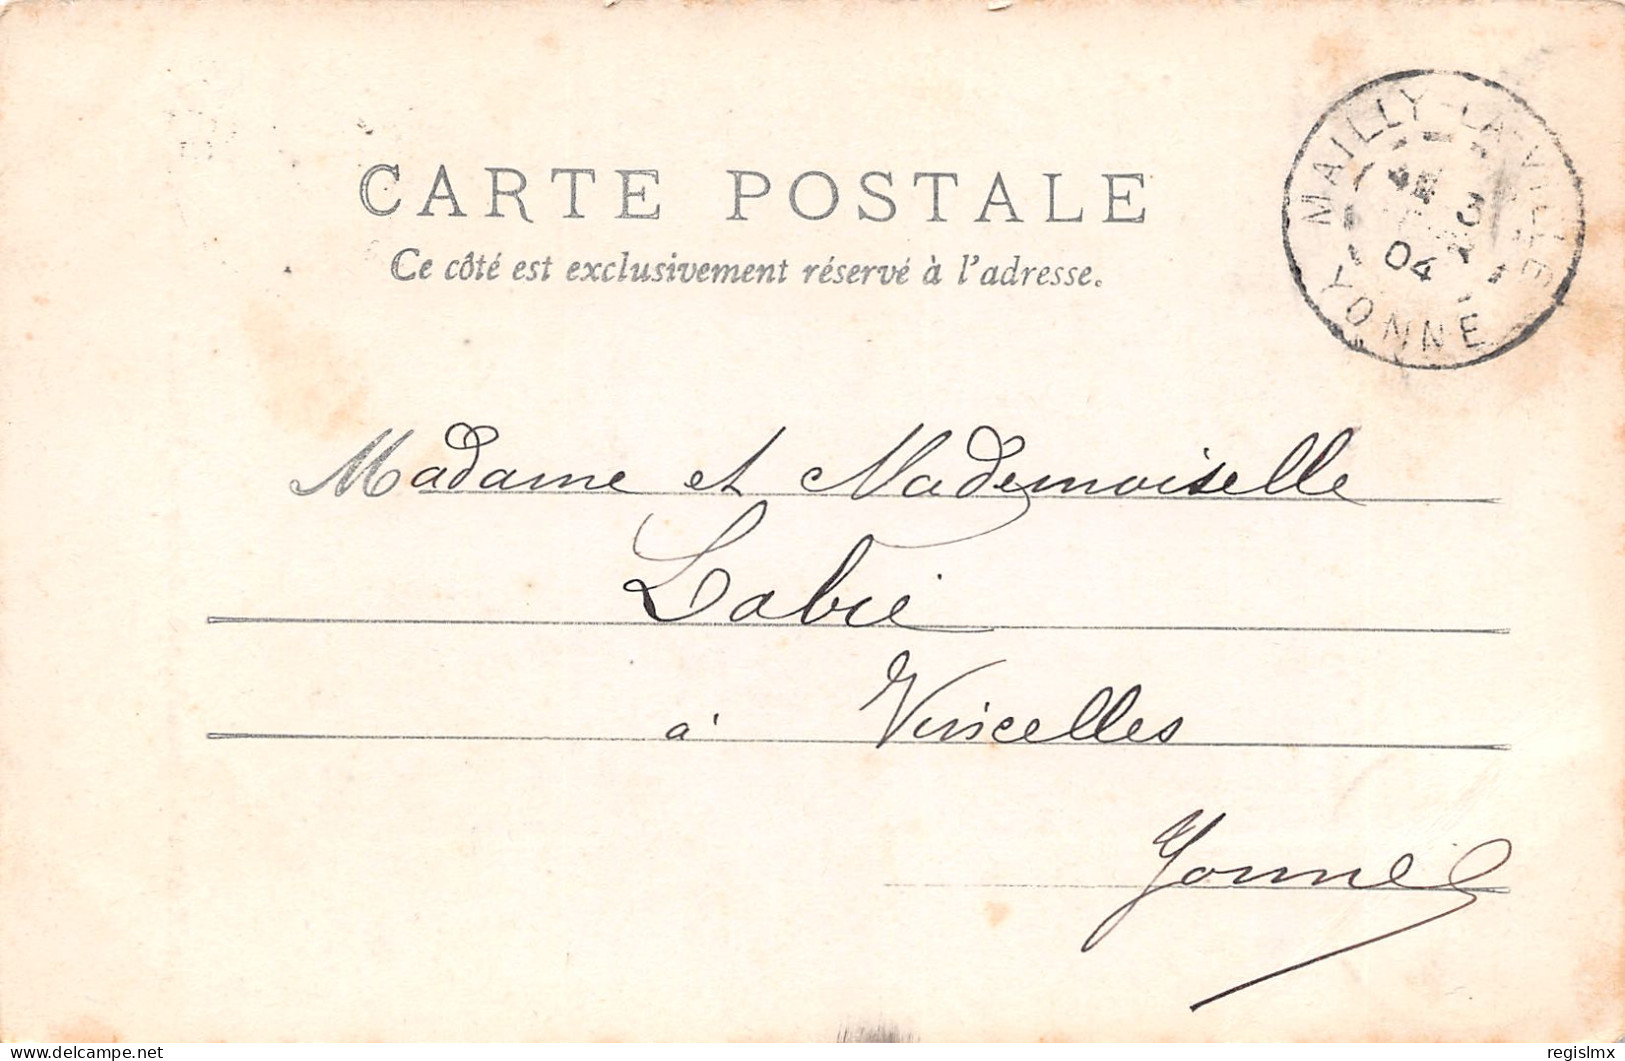 CARTE POSTALE
Ce côté est exclusivement réservé à l'adresse.
MAILLY-LA-VILLE
3
04
YONNE
Madame et Mademoiselle
Labie
à Vincelles
Yonne
delcampe.net
regislmx